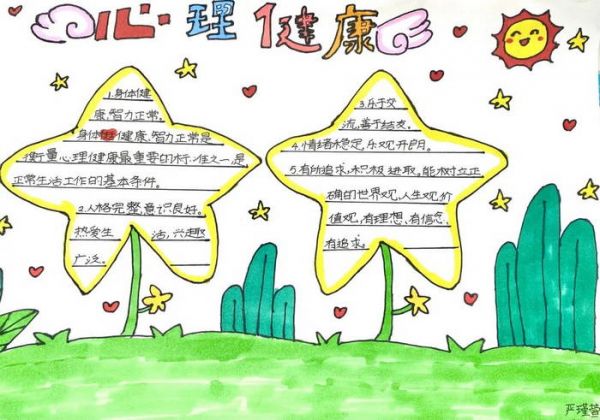 心理健康
1.身体健
康、智力正常。
身体健康、智力正常是
衡量心理健康最重要的标准之一,是
正常生活工作的基本条件。
2.人格完整,意识良好。
热爱生活,兴趣
广泛。
3.乐于交
流,善于结友。
4.情绪稳定,乐观开朗。
5.有所追求,积极进取。能树立正
确的世界观、人生观、价
值观,有理想、有信念、
有追求。
严瑾